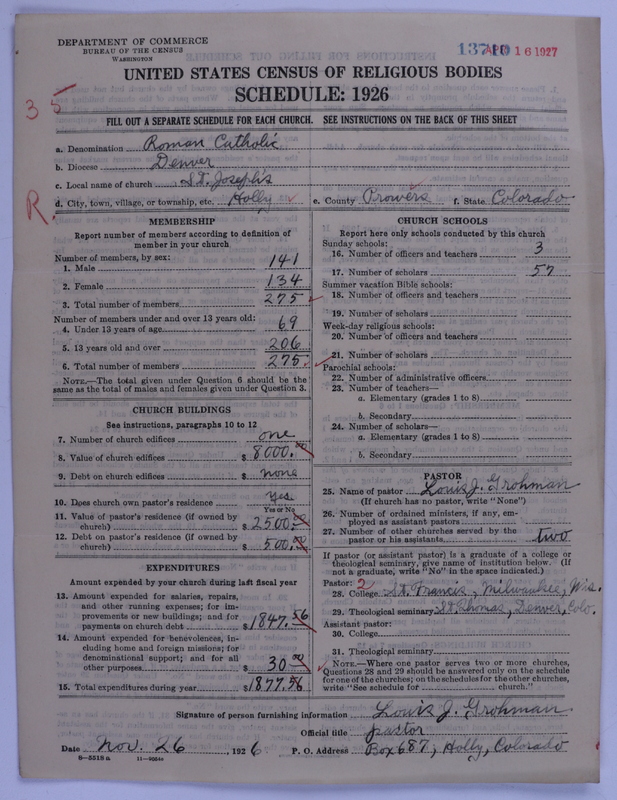 DEPARTMENT OF COMMERCE
BUREAU OF THE CENSUS
WASHINGTON
APR 16 1927
UNITED STATES CENSUS OF RELIGIOUS BODIES
SCHEDULE: 1926
35
FILL OUT A SEPARATE SCHEDULE FOR EACH CHURCH. SEE INSTRUCTIONS ON THE BACK OF THIS SHEET
a. Denomination Roman Catholic
b. Diocese Denver
c. Local name of church St. Joseph's
R.
d. City, town, village, or township, etc. Holly e. County Prowers f. State Colorado
MEMBERSHIP
Report number of members according to definition of
member in your church
Number of members, by sex:
1. Male 141
2. Female 134
3. Total number of members 275
Number of members under and over 13 years old:
4. Under 13 years of age 69
5. 13 years old and over 206
6. Total number of members 275
NOTE.—The total given under Question 6 should be the
same as the total of males and females given under Question 3.
CHURCH BUILDINGS
See instructions, paragraphs 10 to 12
7. Number of church edifices one
8. Value of church edifices $ 8000.00
9. Debt on church edifices $ none
10. Does church own pastor's residence Yes
Yes or No
11. Value of pastor's residence (if owned by
church) $ 2500.00
12. Debt on pastor's residence (if owned by
church) $ 500.00
EXPENDITURES
Amount expended by your church during last fiscal year
13. Amount expended for salaries, repairs,
and other running expenses; for im-
provements or new buildings; and for
payments on church debt $ 1847.56
14. Amount expended for benevolences, in-
cluding home and foreign missions; for
denominational support; and for all
other purposes $ 30.00
15. Total expenditures during year $ 1877.56
CHURCH SCHOOLS
Report here only schools conducted by this church
Sunday schools:
16. Number of officers and teachers 3
17. Number of scholars 57
Summer vacation Bible schools:
18. Number of officers and teachers
19. Number of scholars
Week-day religious schools:
20. Number of officers and teachers
21. Number of scholars
Parochial schools:
22. Number of administrative officers
23. Number of teachers—
a. Elementary (grades 1 to 8)
b. Secondary
24. Number of scholars—
a. Elementary (grades 1 to 8)
b. Secondary
PASTOR
25. Name of pastor Louis J. Grohman
(If church has no pastor, write "None")
26. Number of ordained ministers, if any, em-
ployed as assistant pastors
27. Number of other churches served by the
pastor or his assistants two
If pastor (or assistant pastor) is a graduate of a college or
theological seminary, give name of institution below. (If
not a graduate, write "No" in the space indicated.)
Pastor: 2
28. College St. Francis, Milwaukee, Wis.
29. Theological seminary St. Thomas, Denver, Colo.
Assistant pastor:
30. College
31. Theological seminary
NOTE.—Where one pastor serves two or more churches,
Questions 28 and 29 should be answered only on the schedule
for one of the churches; on the schedules for the other churches,
write "See schedule for church."
Signature of person furnishing information Louis J. Grohman
Official title pastor
Date Nov. 26, 1926 P. O. Address Box 687, Holly, Colorado
8—5518a